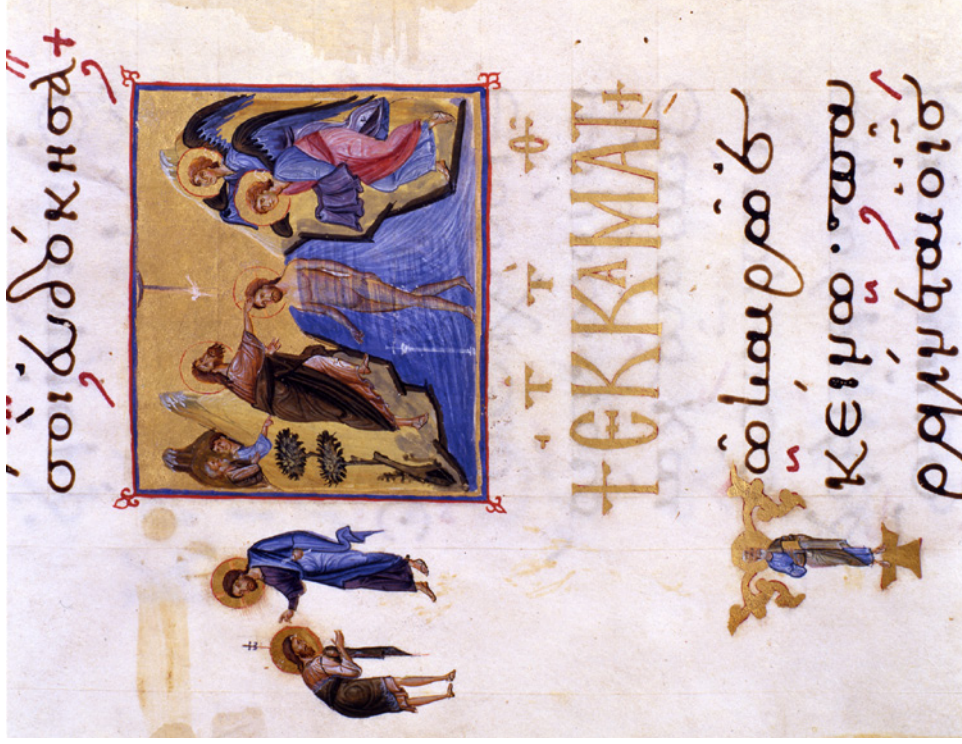 σοι ἐυδόκησα +
+ ΕΚ ΚΑ ΜΑΤ +
Τῶ καιρῶ ἐ
κείνω · πα
ραγίνεται ὁ ις